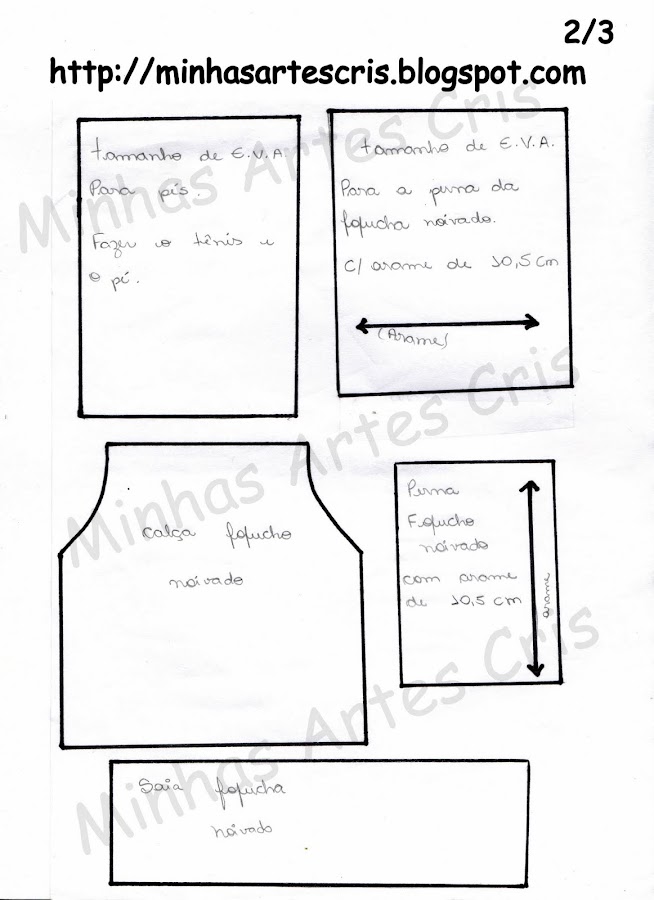 2/3
http://minhasartescris.blogspot.com
tamanho de E.V.A.
Para pés.
Fazer o tênis e
o pé.
tamanho de E.V.A.
Para a perna da
fofucha noivado.
C/ arame de 10,5 cm
(Arame)
Calça fofucho
noivado
Perna
Fofucho
noivado
com arame
de 10,5 cm
arame
Saia fofucha
noivado
Minhas Artes Cris
Minhas Artes Cris
Minhas Artes Cris